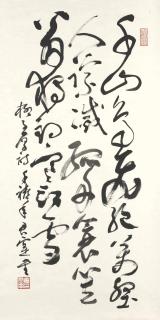 千山鳥飛絕萬徑
人蹤滅孤舟蓑笠
翁獨釣寒江雪
柳子厚詩